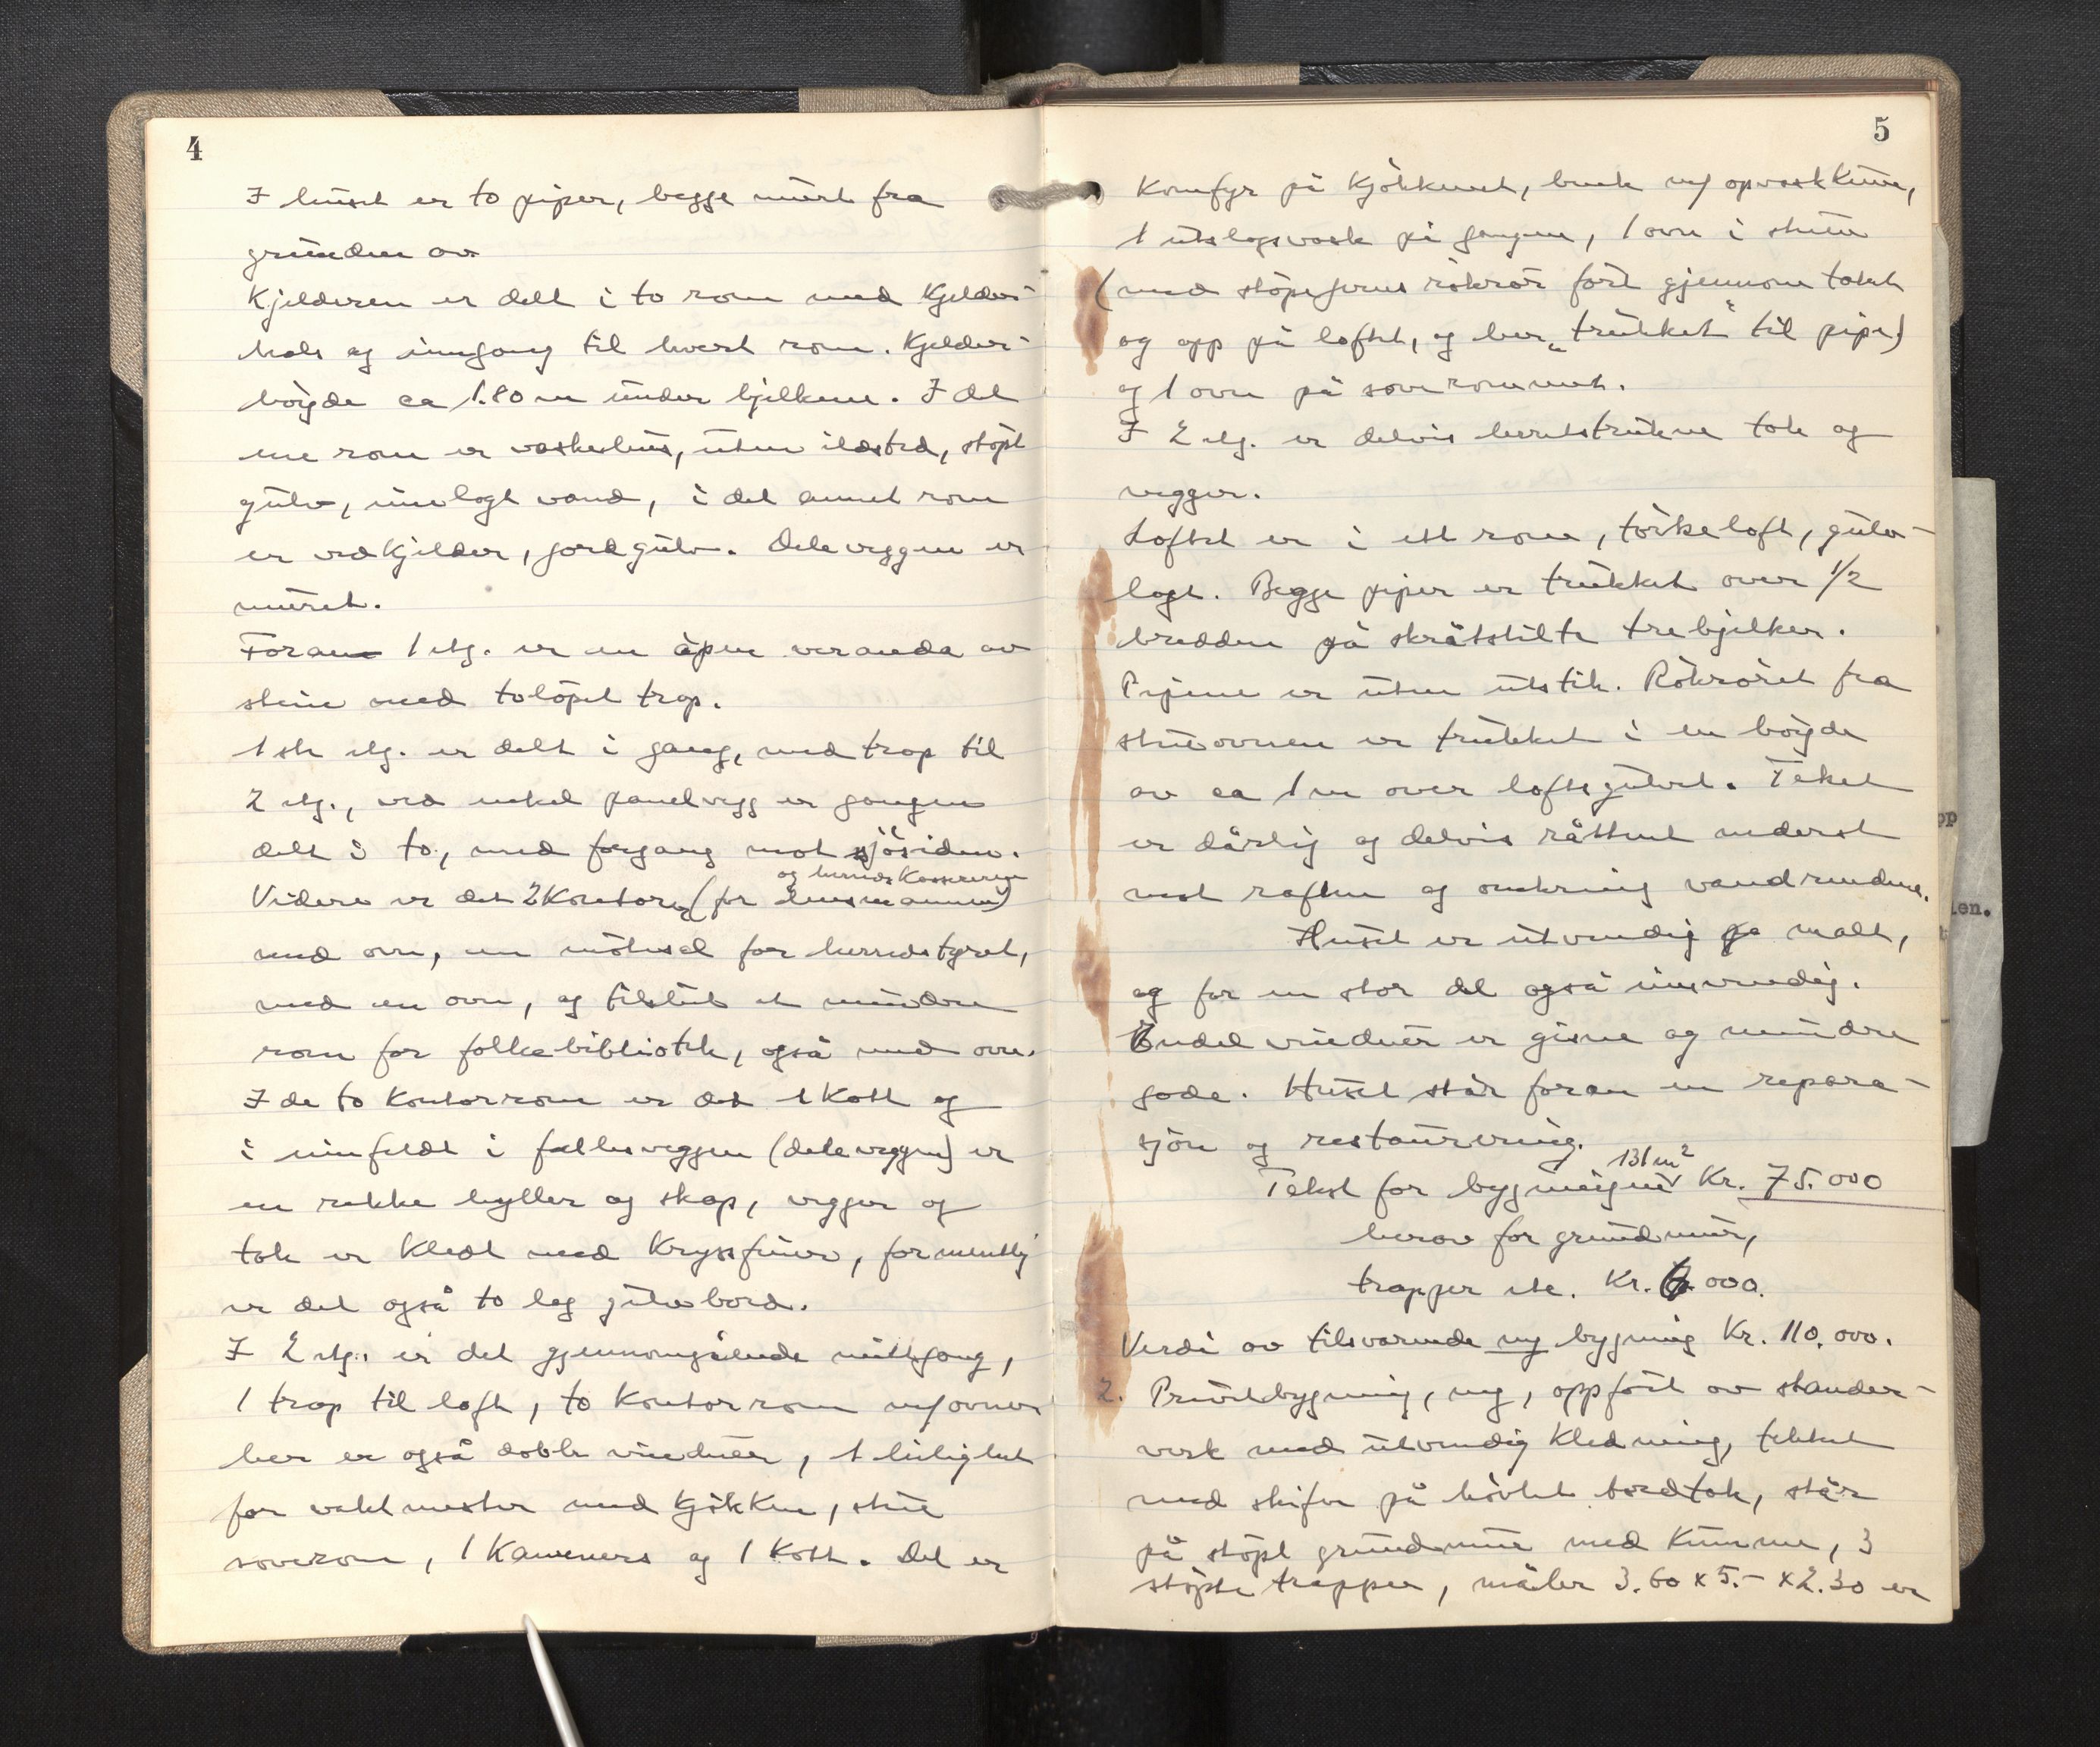 4
I huset er to piper, begge mürt fra
grunden av
Kjelderen er delt i to rom med Kjelder-
hals og inngang til hvert rom. Kjelder-
höyde ca 1.80 m under bjelkene. I det
ene rom er vaskehus, uten ildsted, støpt
gulv, innlagt vand, i det annet rom
er vedkjelder, jordgulv. Deleveggen er
müret.
Foran 1 etg. er en åpen veranda av
stein med toløpet trap.
1ste etg. er delt i gang, med trap til
2 etg., ved enkel panelvegg er gangen
delt i to, med forgang mot sjösiden.
og herredskassereren
Videre er det 2 Kontorer (for lensmannen)
med ovn, en mötesal for herredstyret,
med en ovn, og tilslut et mindre
rom for folkebibliotek, også med ovn.
I de to Kontorrom er det 1 Kott og
i innfeldt i fellesveggen (deleveggen) er
en rekke hyller og skap, vegger og
tak er Kledt med Kryssfiner, formentlig
er det også to lag gulvbord.
I 2 etg. er det gjennomgående midtgang,
1 trap til loft, to Kontorrom m/ovner
her er også doble vinduer, 1 leilighet
for vaktmester med Kjökken, stue
soverom, 1 Kammers og 1 Kott. Det er
5
Komfyr på Kjökkenet, benk m/ opvaskkum,
1 utslagsvask på gangen, 1 ovn i stuen
(med støpejerns rökrör fört gjennom taket
og opp på loftet, og her „trukket" til pipe)
og 1 ovn på soverommet.
I 2 etg. er delvis lerretstrukne tak og
vegger.
Loftet er i ett rom, törkeloft, gulv-
lagt. Begge piper er trukket over 1/2
bredden på skråtstilte trebjelker.
Pipene er uten utstik. Rökröret fra
stueovnen er trukket i en höyde
av ca 1 m over loftsgulvet. Teket
er dårlig og delvis råttent nederst
mot raften og omkring vandrendene.
Huset er utvendig malt,
og for en stor del også innvendig.
Endel vinduer er gisne og mindre
gode. Huset står foran en repara-
sjon og restaurering.
131 m²
Takst for bygningen Kr. 75.000
herav for grundmur,
trapper etc. Kr. 6.000.
Verdi av tilsvarende ny bygning Kr. 110.000.
2. Privetbygning, ny, oppfört av stander-
verk med utvendig Kledning, tekket
med skifer på hövlet bordtak, står
på støpt grundmur med Kumme, 3
støpte trapper, måler 3.60 x 5.- x 2.30 er
pp
ien.